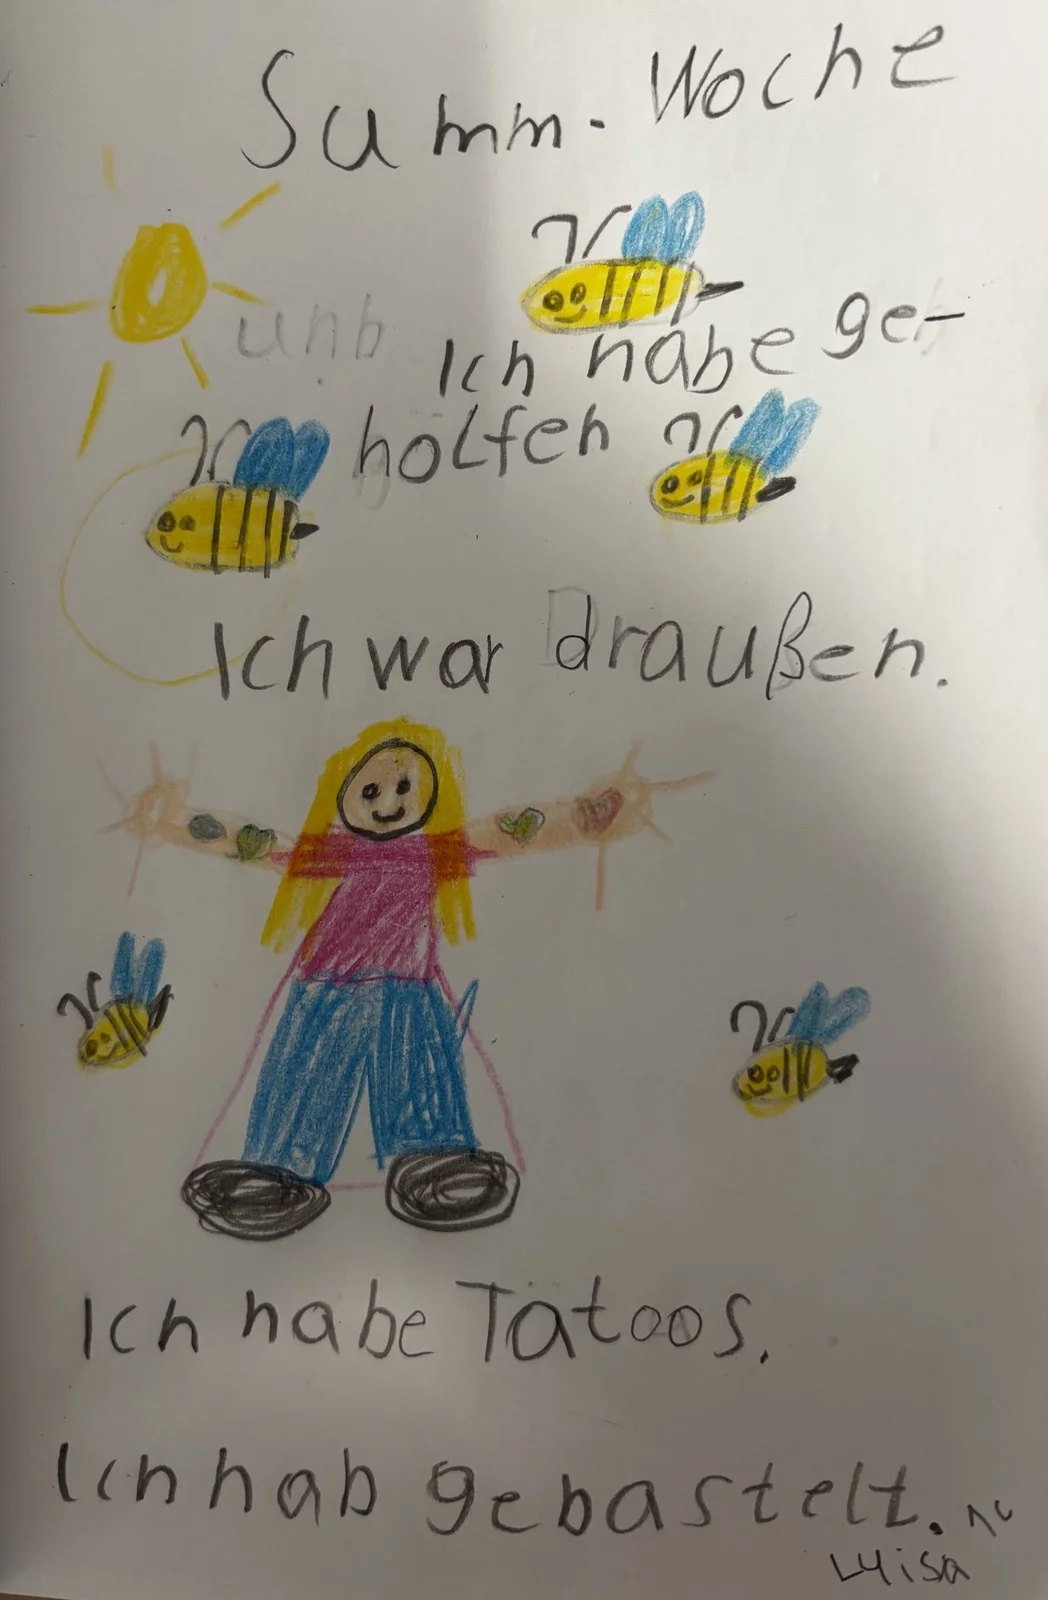 Summ-Woche
unb
Ich habe ge-
holfen
Ich war draußen.
Ich habe Tatoos.
Ich hab gebastelt.
Luisa